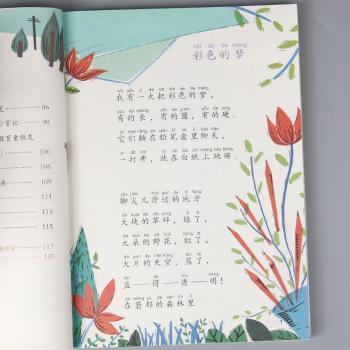 86
90
100
106
109
111
115
117
120
cǎi sè de mèng
彩色的梦
wǒ yǒu yí dà bǎ cǎi sè de mèng
我有一大把彩色的梦，
yǒu de cháng yǒu de yuán yǒu de yìng
有的长，有的圆，有的硬。
tā men tǎng zài qiān bǐ hé lǐ liáo tiān
它们躺在铅笔盒里聊天，
yì dǎ kāi jiù zài bái zhǐ shàng tiào bèng
一打开，就在白纸上跳蹦。
jiǎo jiān er huá guò de dì fāng
脚尖儿滑过的地方
dà kuài de cǎo píng lǜ le
大块的草坪，绿了；
dà duǒ de yě huā hóng le
大朵的野花，红了；
dà piàn de tiān kōng lán le
大片的天空，蓝了，
lán dé tòu míng
蓝——得——透——明！
zài cōng yù de sēn lín lǐ
在葱郁的森林里